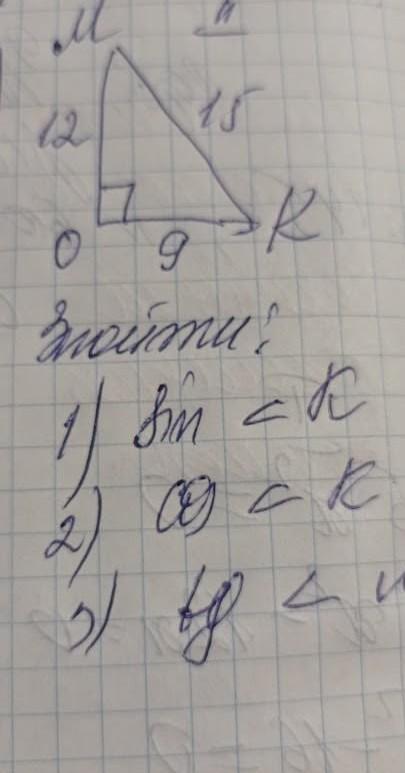 M
12
15
O
9
K
Знайти:
1) sin < K
2) cos < K
3) tg <